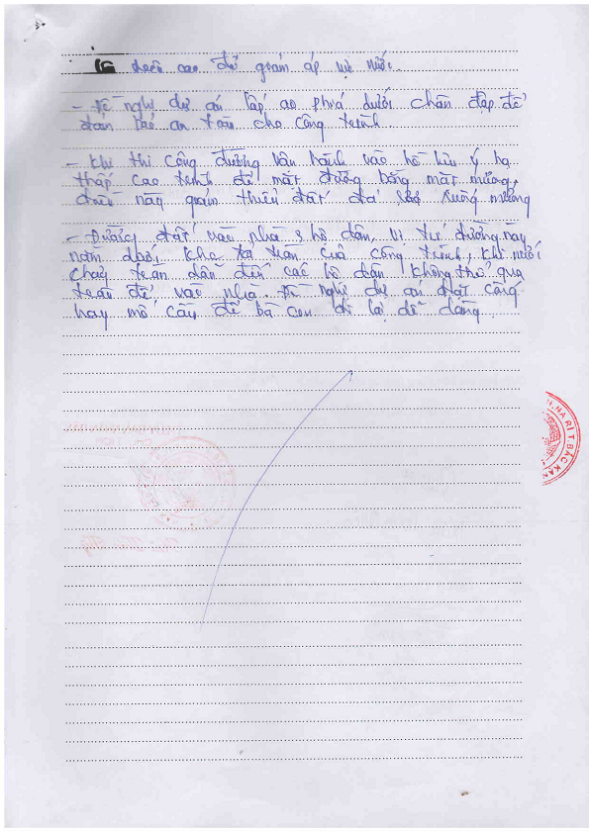 cao để giảm áp lực nước.
- Đề nghị dự án lấp ao phía dưới chân đập để
đảm bảo an toàn cho công trình
- Khi thi công đường vận hành vào hồ lưu ý hạ
thấp cao trình để mặt đường bằng mặt mương,
điều này giảm thiểu đất đá xuống mương
- Đường đất vào nhà hộ dân, vị trí đường này
nằm dưới xả tràn của công trình, khi nước
chảy tràn dẫn đến các hộ dân không thể qua
tràn để vào nhà. Đề nghị dự án đặt cống
hay mố cầu để bà con đi lại dễ dàng
H.NA RÌ T.BẮC KẠN